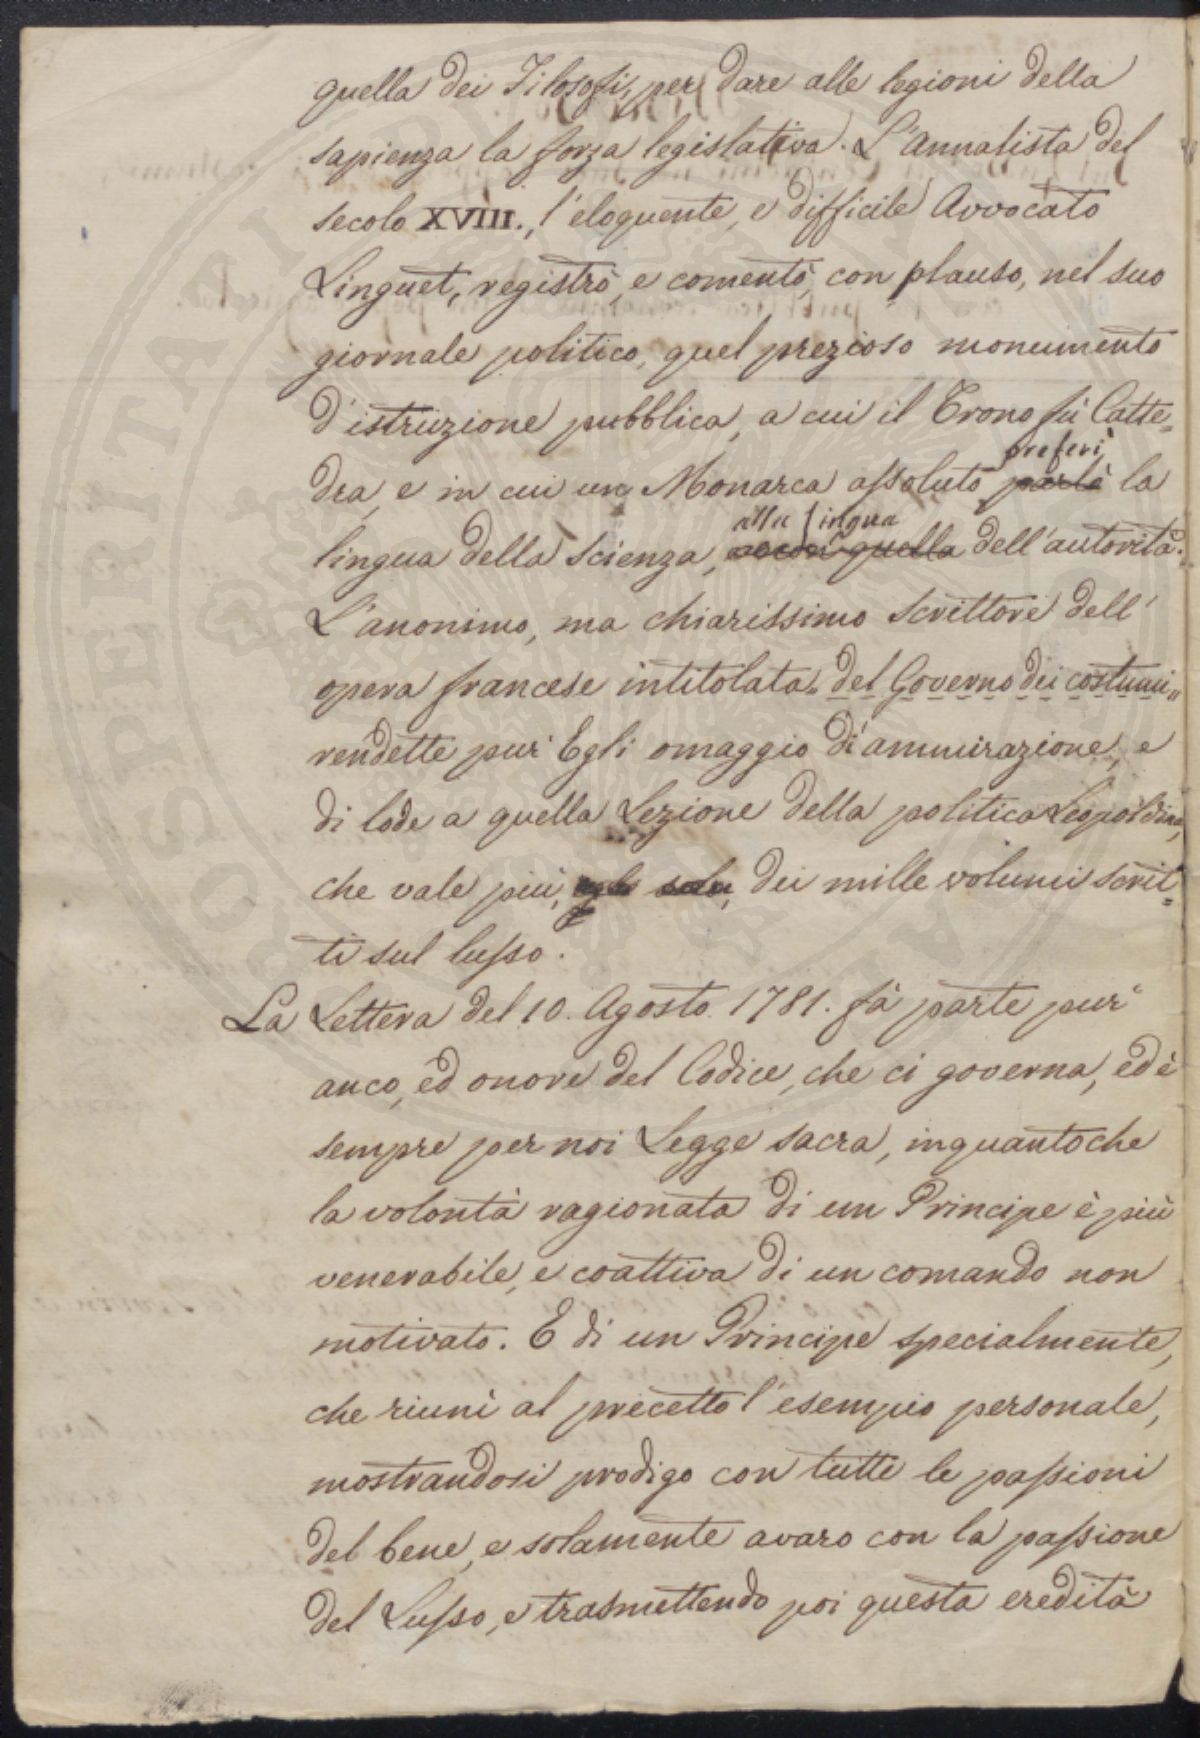 quella dei Filosofi, per dare alle legioni della
sapienza la forza legislativa. L'Annalista del
secolo XVIII., l'eloquente, e difficile Avvocato
Linguet, registrò, e comentò, con plauso, nel suo
giornale politico, quel prezioso monumento
d'istruzione pubblica, a cui il Trono fù Catte=
preferì
dra, e in cui un Monarca assoluto parlò la
alla lingua
lingua della Scienza, quella dell'autorità.
L'anonimo, ma chiarissimo Scrittore dell'
opera francese intitolata "del Governo dei costumi"
rendette pur' Egli omaggio di ammirazione, e
di lode a quella Lezione della politica Leopoldina,
che vale più, sola, dei mille volumi scrit=
ti sul lusso.
La Lettera del 10. Agosto 1781. fà parte pur'
anco, ed onore del Codice, che ci governa, ed è
sempre per noi Legge sacra, inquantoche
la volontà ragionata di un Principe è più
venerabile, e coattiva di un comando non
motivato. E di un Principe specialmente,
che riunì al precetto l'esempio personale,
mostrandosi prodigo con tutte le passioni
del bene, e solamente avaro con la passione
del Lusso, e trasmettendo poi questa eredità